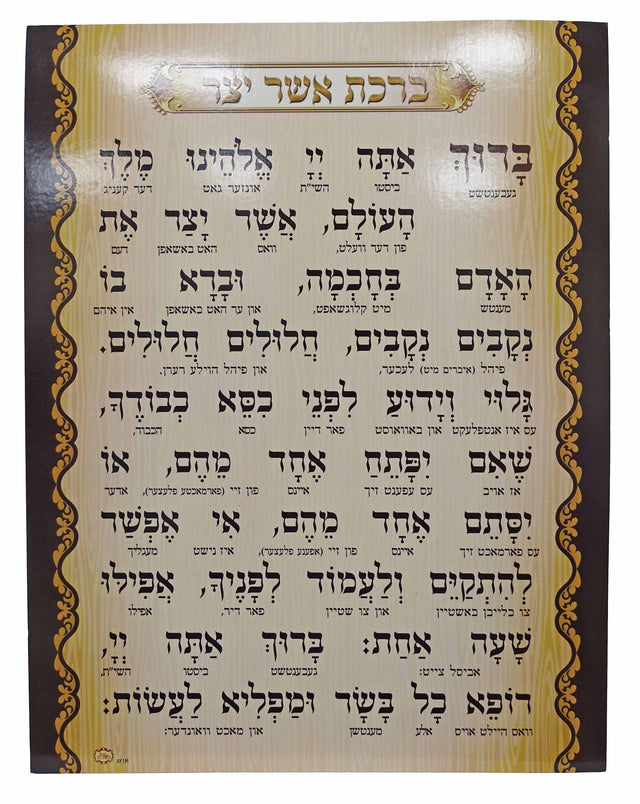 ברכת אשר יצר
בָּרוּךְ אַתָּה יְיָ אֱלֹהֵינוּ מֶלֶךְ
געבענטשט ביסטו השי"ת אונזער גאט דער קעניג
הָעוֹלָם, אֲשֶׁר יָצַר אֶת
פון דער וועלט, וואס האט באשאפן דעם
הָאָדָם בְּחָכְמָה, וּבָרָא בוֹ
מענטש מיט קלוגשאפט, און ער האט באשאפן אין איהם
נְקָבִים נְקָבִים, חֲלוּלִים חֲלוּלִים.
פיהל (איברים מיט) לעכער, און פיהל הוילע רערן.
גָּלוּי וְיָדוּעַ לִפְנֵי כִסֵּא כְבוֹדֶךָ,
עס איז אנטפלעקט און באוואוסט פאר דיין כסא הכבוד,
שֶׁאִם יִפָּתֵחַ אֶחָד מֵהֶם, אוֹ
אז אויב עס עפענט זיך איינס פון זיי (פארמאכטע פלעצער), אדער
יִסָּתֵם אֶחָד מֵהֶם, אִי אֶפְשַׁר
עס פארמאכט זיך איינס פון זיי (אפענע פלעצער), איז נישט מעגליך
לְהִתְקַיֵּם וְלַעֲמוֹד לְפָנֶיךָ, אֲפִילוּ
צו בלייבן באשטיין און צו שטיין פאר דיר, אפילו
שָׁעָה אֶחָת: בָּרוּךְ אַתָּה יְיָ,
אביסל צייט: געבענטשט ביסטו השי"ת,
רוֹפֵא כָל בָּשָׂר וּמַפְלִיא לַעֲשׂוֹת:
וואס היילט אויס אלע מענטשן און מאכט וואונדער:
AYIM